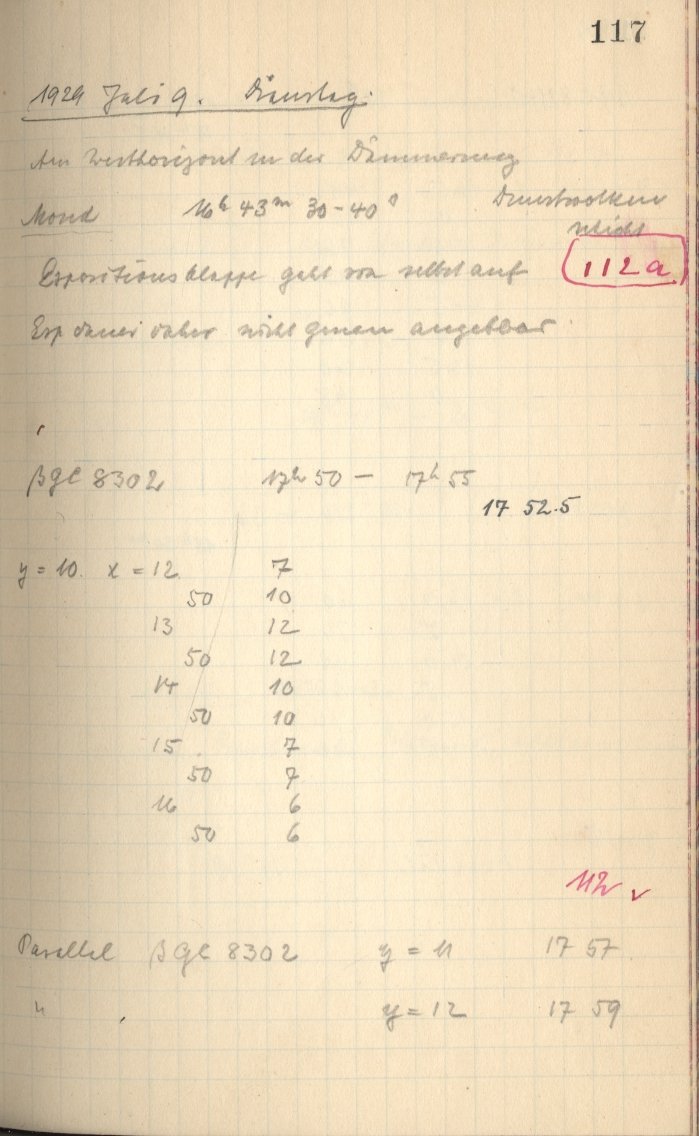 117
1929 Juli 9. Dienstag.
Am Westhorizont in der Dämmerung
Mond 16h 43m 30-40s Dunstwolken
schicht
Expositionsklappe geht von selbst auf 112a
Exp dauer daher nicht genau angebbar
βGC 8302 17h 50 - 17h 55
17 52.5
y = 10. x = 12 7
50 10
13 12
50 12
14 10
50 10
15 7
50 7
16 6
50 6
112
Parallel βGC 8302 y = 11 17 57
" y = 12 17 59